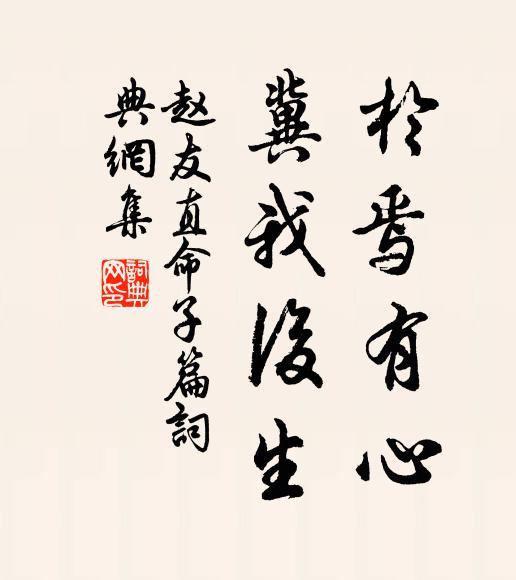 於焉有心
冀我後生
赵友直命子篇詞
典網集
詞典
网印